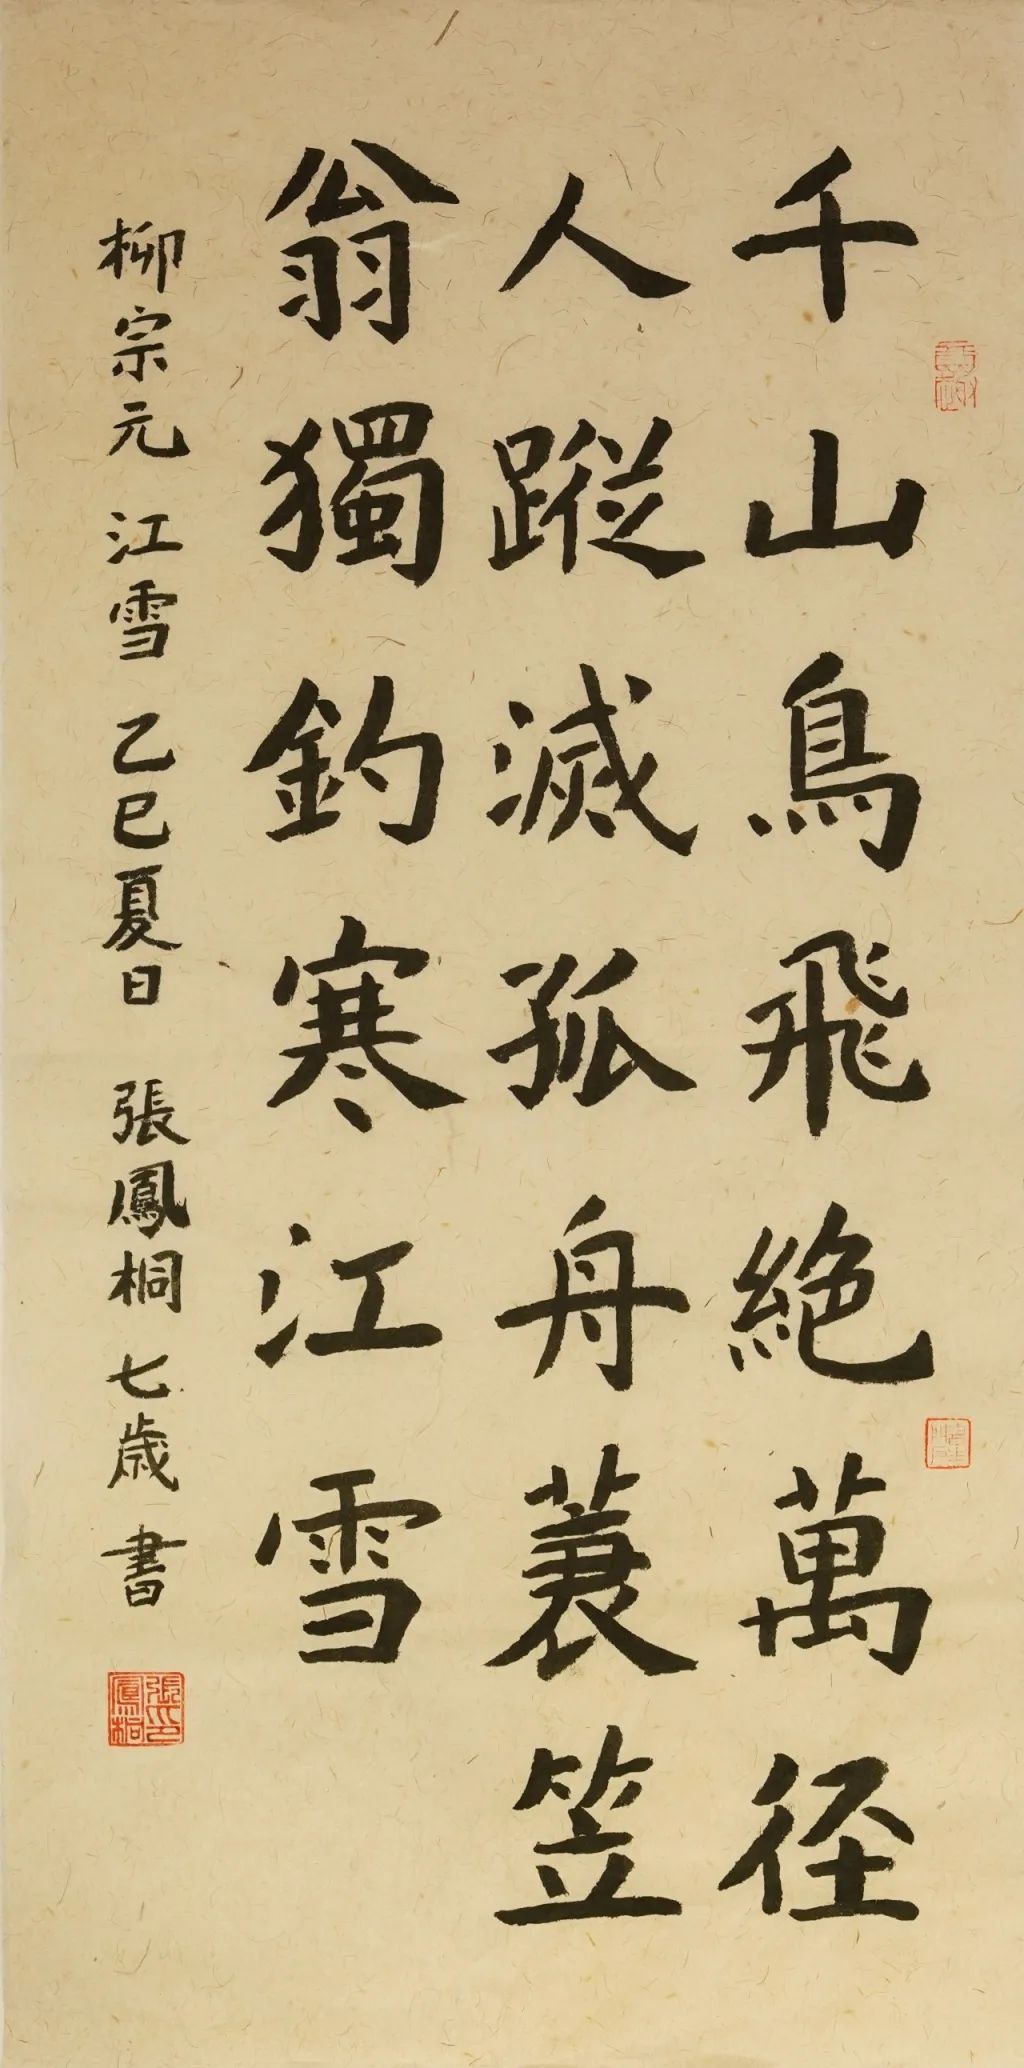 千山鳥飛絶萬径
人蹤滅孤舟蓑笠
翁獨釣寒江雪
柳宗元 江雪 乙巳夏日 張鳳桐 七歲 書
張鳳桐印